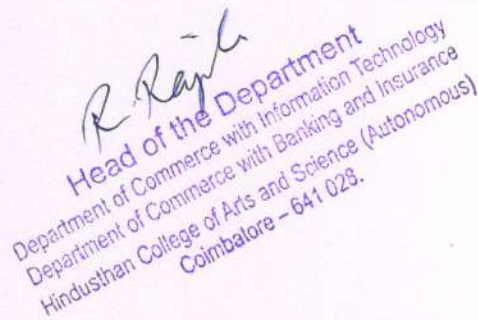 Head of the Department
Department of Commerce with Information Technology
Department of Commerce with Banking and Insurance
Hindusthan College of Arts and Science (Autonomous)
Coimbatore – 641 028.